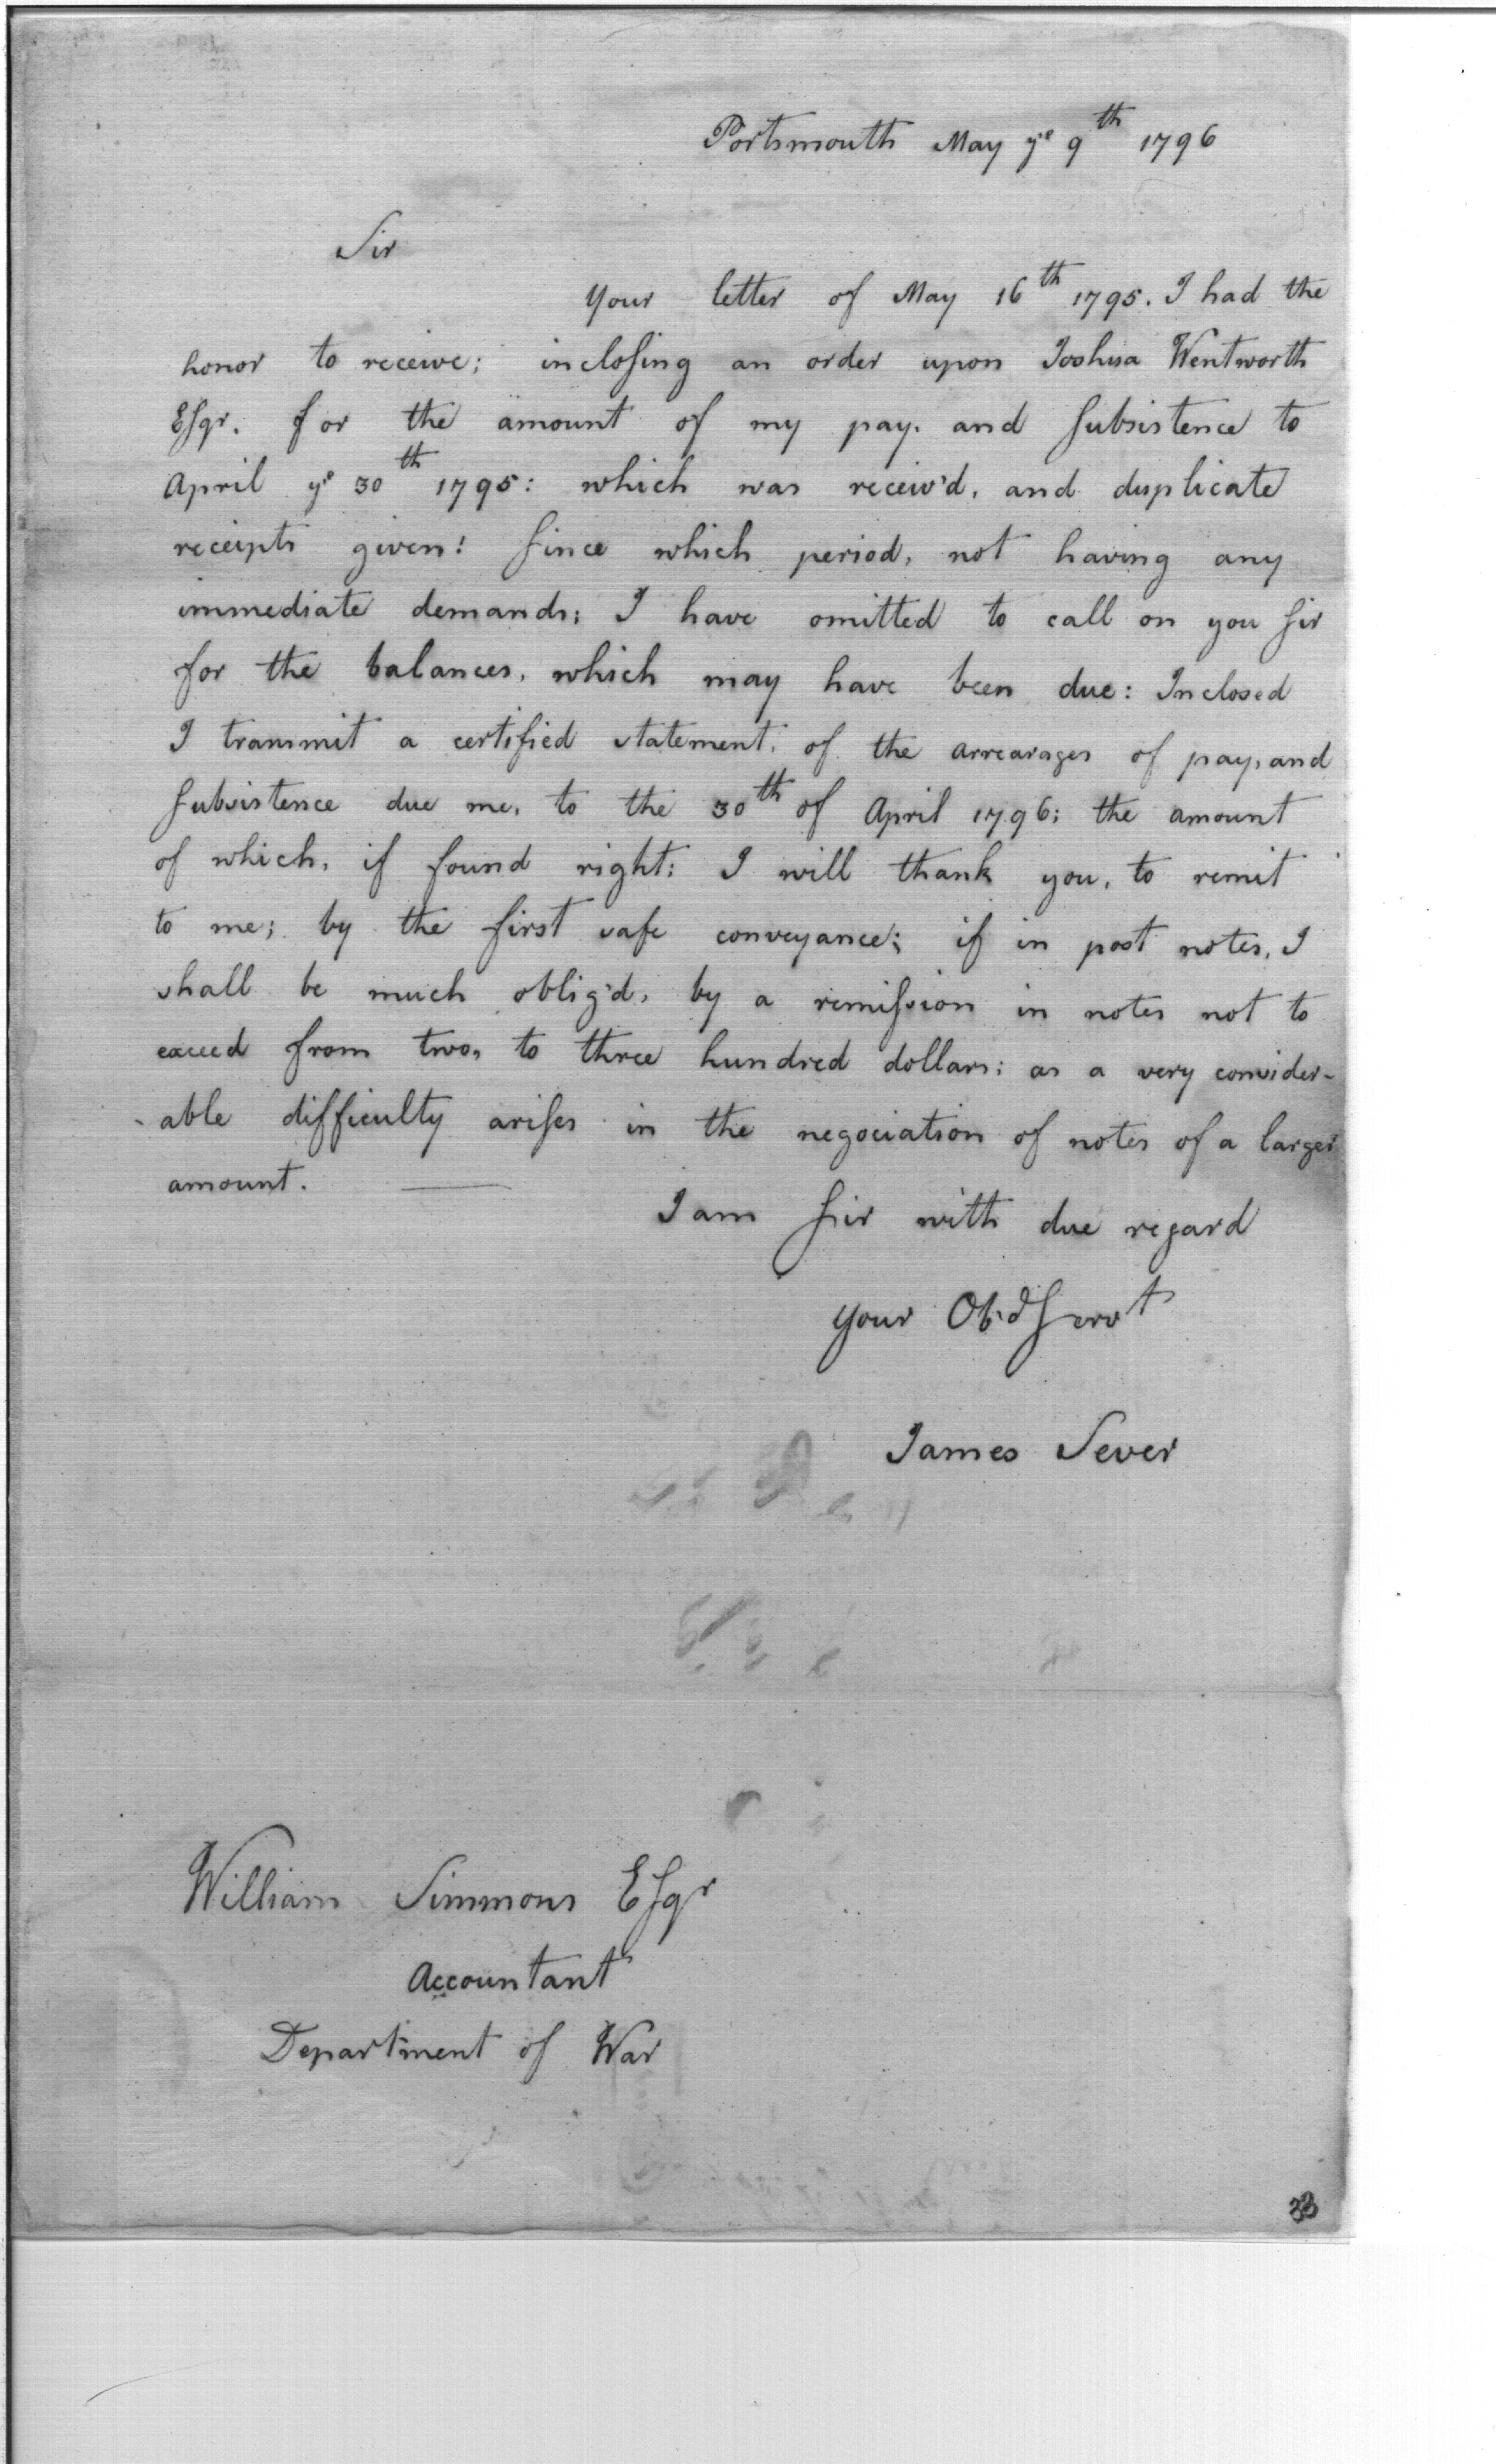 Portsmouth May ye 9th 1796
Sir
Your letter of May 16th 1795. I had the
honor to receive; inclosing an order upon Joshua Wentworth
Esqr. for the amount of my pay. and subsistence to
April ye 30th 1795: which was receiv'd, and duplicate
receipts given: since which period, not having any
immediate demands; I have omitted to call on you sir
for the balances, which may have been due: Inclosed
I transmit a certified statement, of the arrearages of pay, and
subsistence due me, to the 30th of April 1796; the amount
of which, if found right; I will thank you, to remit
to me; by the first safe conveyance; if in post notes, I
shall be much oblig'd, by a remission in notes not to
exceed from two, to three hundred dollars; as a very consider-
-able difficulty arises in the negociation of notes of a larger
amount.
I am sir with due regard
your Obd servt
James Sever
William Simmons Esqr
Accountant
Department of War
33